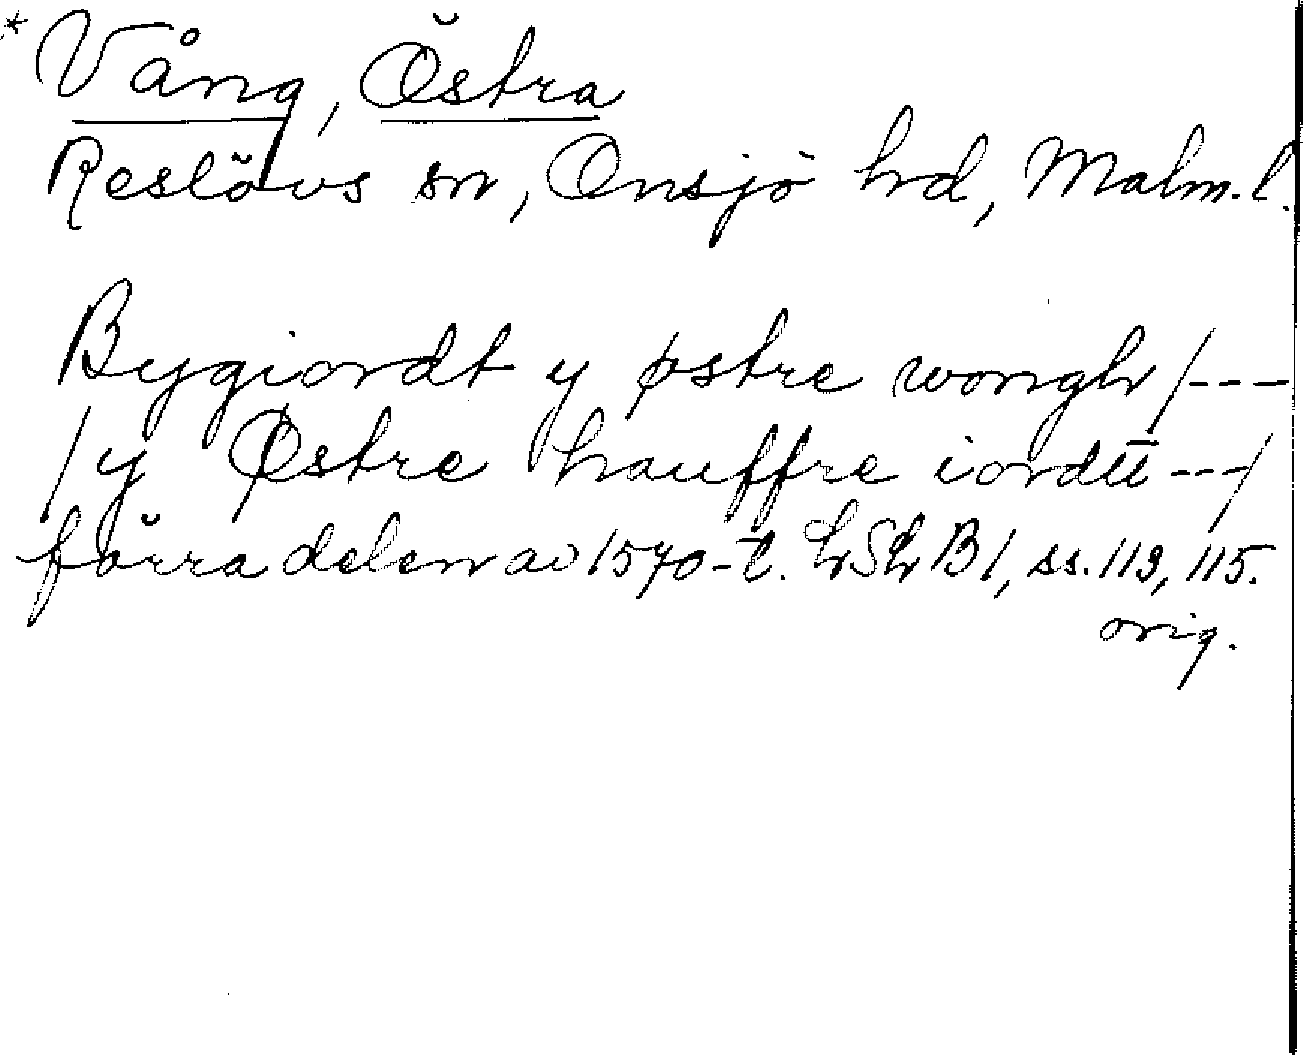 * Vång, Östra
Reslövs sn, Onsjö hd, Malm. l.
Bygiordt y østre wongh /---
/ y Østre hauffre iordtt ---/
förra delen av 1570-t. LSLB1, ss. 113, 115.
orig.